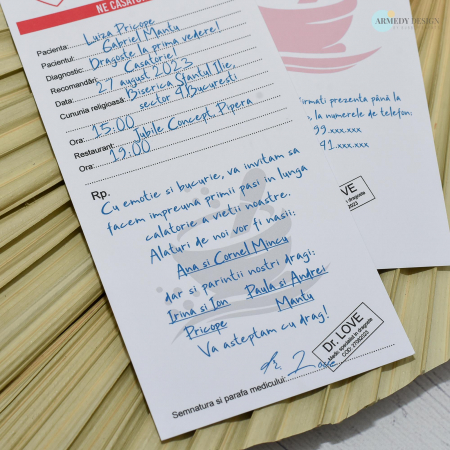 ARMEDY DESIGN
NE CASATO
Pacienta: Luiza Pricope
Pacientul: Gabriel Mantu
Diagnostic: Dragoste la prima vedere!
Recomandări: Casatorie!
Data: 27 august 2023
Cununia religioasă: Biserica Sfantul Ilie,
sector 1/Bucuresti
Ora: 15.00
Restaurant: Jubile Concept, Pipera
Ora: 19.00
Rp.
Cu emotie si bucurie, va invitam sa
facem impreuna primii pasi in lunga
calatorie a vietii noastre.
Alaturi de noi vor fi nasii:
Ana si Cornel Mincu
dar si parintii nostri dragi:
Irina si Ion Paula si Andrei
Pricope Mantu
Va asteptam cu drag!
Dr. LOVE
Medic specialist in dragoste
COD: 27082023
Dr. Love
Semnatura si parafa medicului:
irmati prezenta până la
la numerele de telefon:
99.xxx.xxx
91.xxx.xxx
VE
dragoste
2023